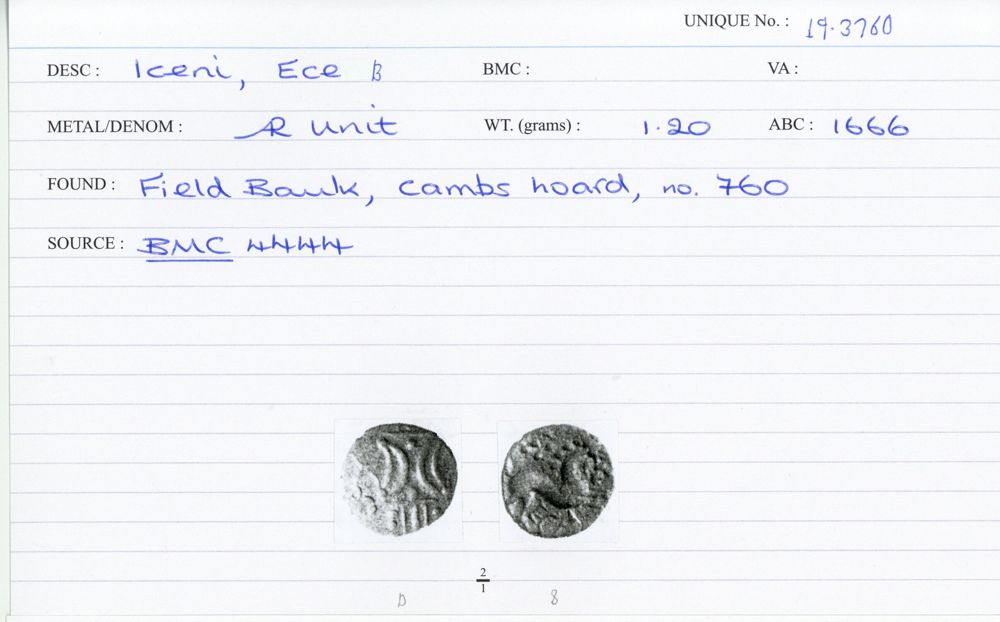 UNIQUE No. : 19.3760
DESC : Iceni, Ece B BMC : VA :
METAL/DENOM : AR Unit WT. (grams) : 1.20 ABC : 1666
FOUND : Field Baulk, Cambs hoard, no. 760
SOURCE : BMC 4444
2
1
D 8